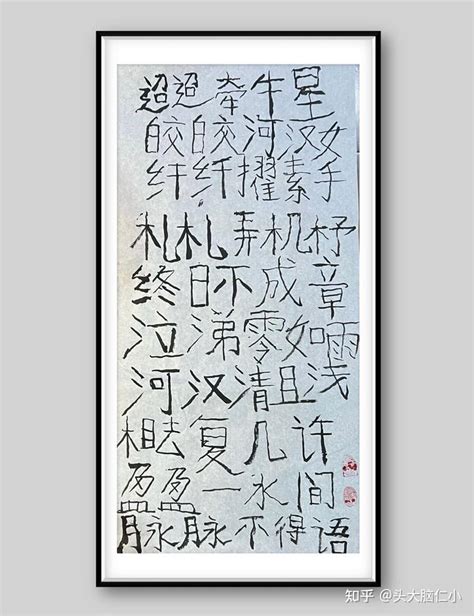 迢迢牵牛星
皎皎河汉女
纤纤擢素手
札札弄机杼
终日不成章
泣涕零如雨
河汉清且浅
相去复几许
盈盈一水间
脉脉不得语
知乎 @头大脑仁小